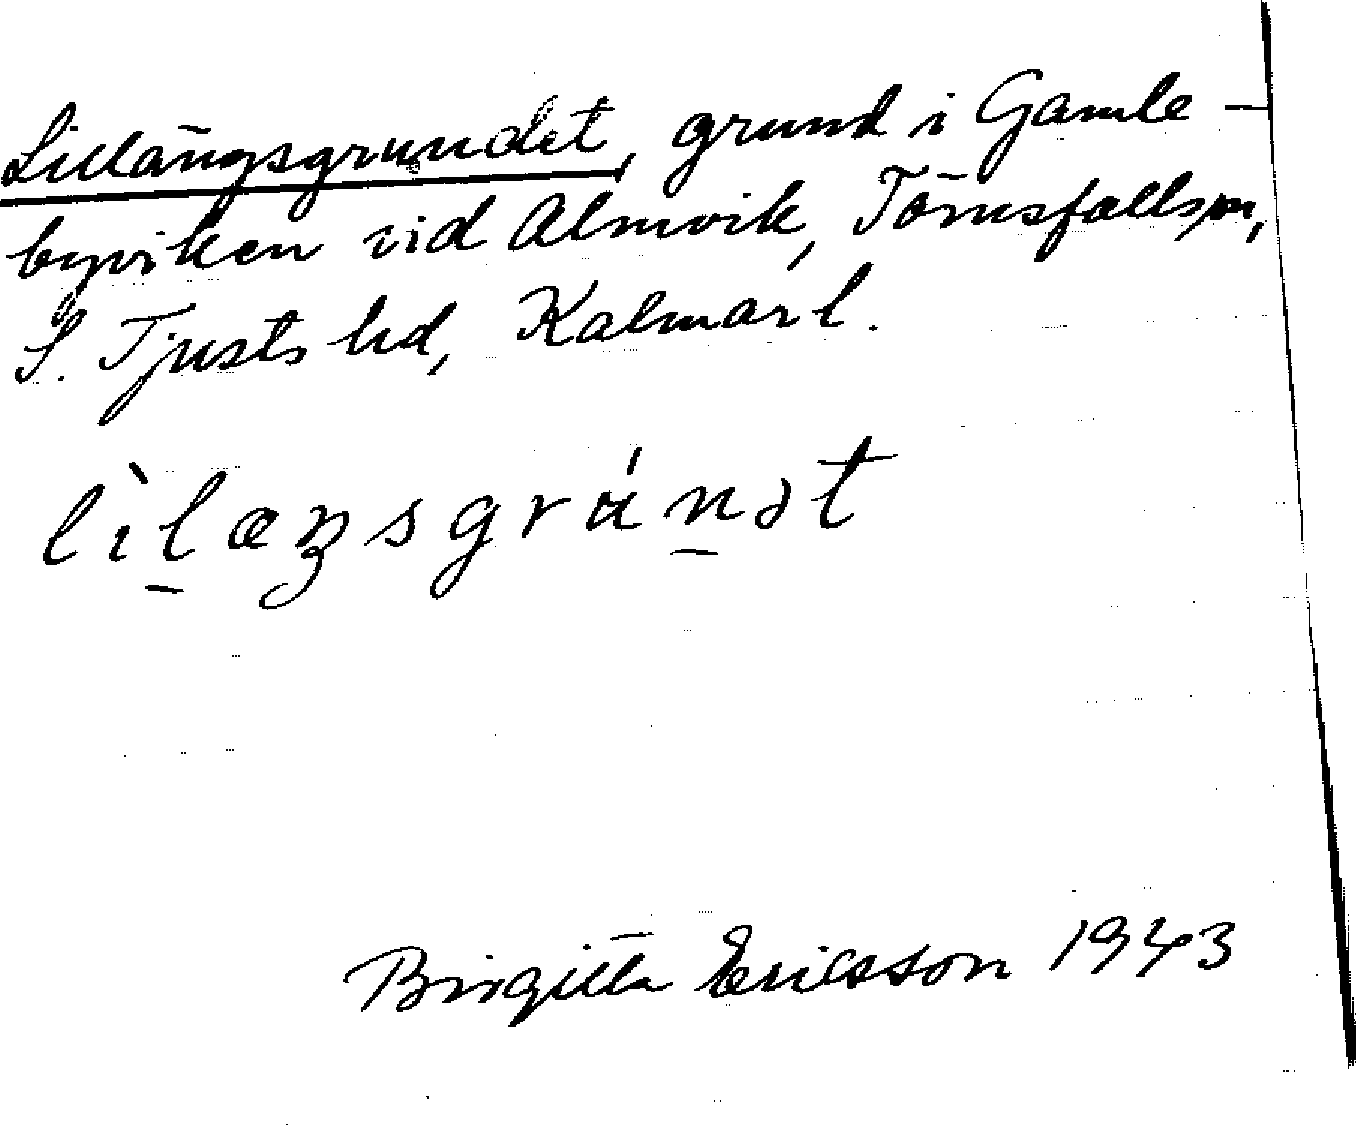 Lillängsgrundet, grund i Gamle-
byviken vid Almvik, Törnsfalls sn,
S. Tjusts hd, Kalmar l.
lìl̠æŋsgrún̠ət
Birgitta Ericsson 1943